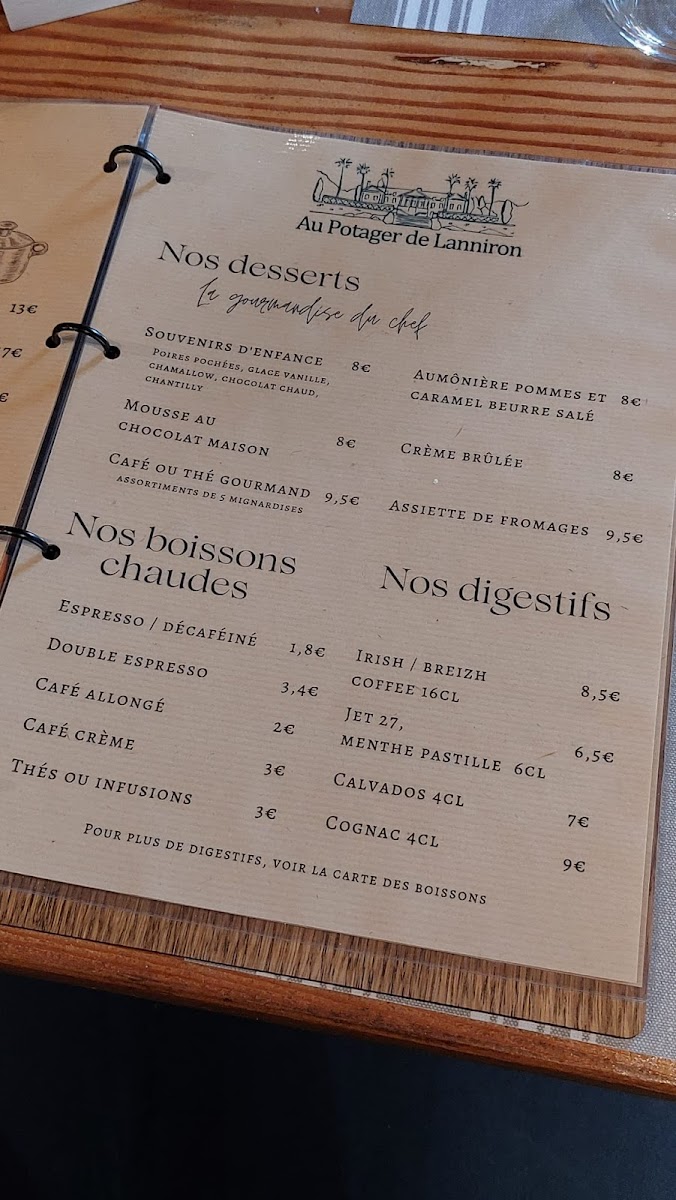 13€
7€
€
Au Potager de Lanniron
Nos desserts
La gourmandise du chef
Souvenirs d'enfance 8€
Poires pochées, glace vanille,
chamallow, chocolat chaud,
chantilly
Mousse au
chocolat maison 8€
Café ou thé gourmand 9,5€
assortiments de 5 mignardises
Aumônière pommes et 8€
caramel beurre salé
Crème brûlée 8€
Assiette de fromages 9,5€
Nos boissons
chaudes
Espresso / décaféiné 1,8€
Double espresso 3,4€
Café allongé 2€
Café crème 3€
Thés ou infusions 3€
Nos digestifs
Irish / Breizh
coffee 16cl 8,5€
Jet 27,
menthe pastille 6cl 6,5€
Calvados 4cl 7€
Cognac 4cl 9€
Pour plus de digestifs, voir la carte des boissons